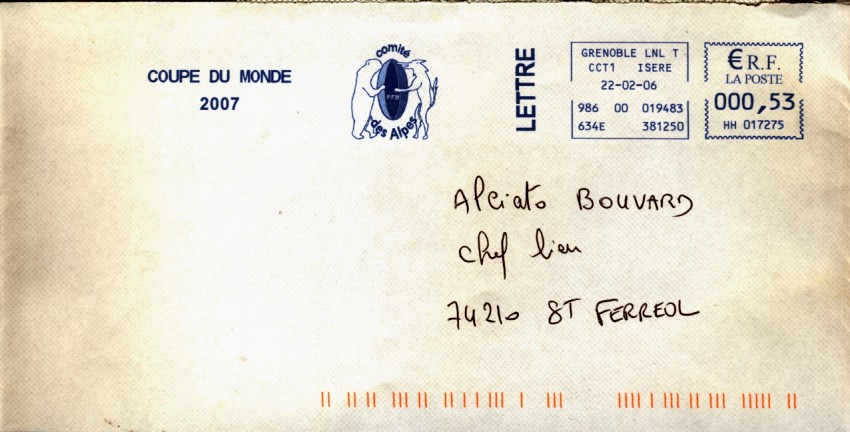 COUPE DU MONDE
2007
comité
FFR
des Alpes
LETTRE
GRENOBLE LNL T
CCT1 ISERE
22-02-06
986 00 019483
634E 381250
€ R.F.
LA POSTE
000,53
HH 017275
Alciato BOUVARD
Chef lieu
74210 ST FERREOL